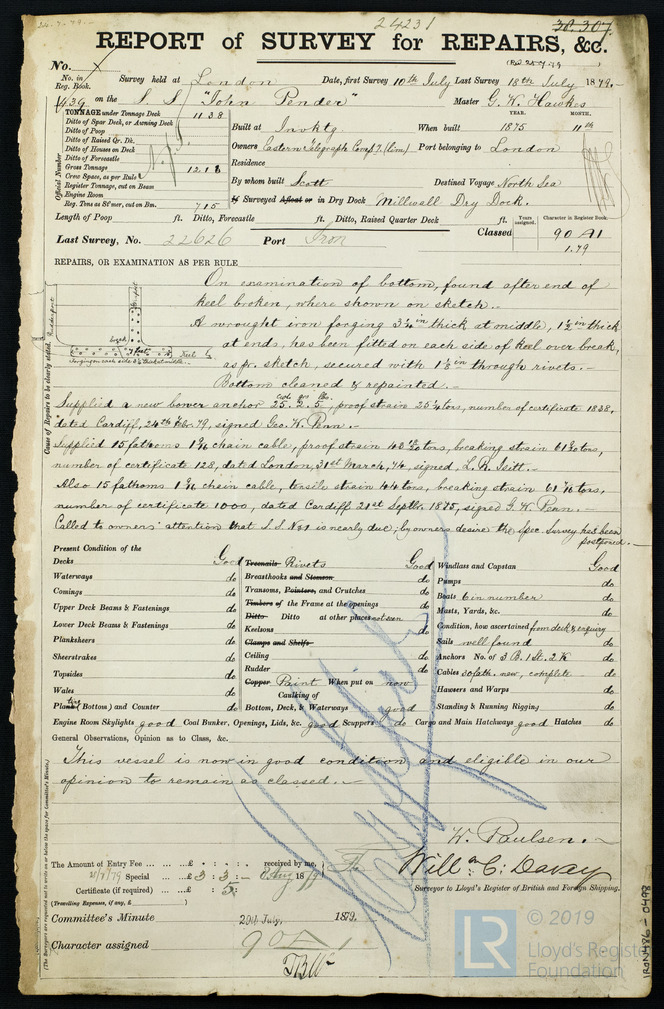 24.7.79.
24231
30.307
REPORT of SURVEY for REPAIRS, &c.
No. in Reg. Book. Survey held at London Date, first Survey 10th July Last Survey 18th July 1879.
439 on the S. S. "John Pender" Master G. W. Hawkes
TONNAGE under Tonnage Deck 1138
Ditto of Spar Deck, or Awning Deck
Ditto of Poop
Ditto of Raised Qr. Dk.
Ditto of Houses on Deck
Ditto of Forecastle
Gross Tonnage 1218
Crew Space, as per Rule
Register Tonnage, cut on Beam
Engine Room
Reg. Tons as Stmr, cut on Bm. 715
Official Number
YEAR. MONTH.
Built at Invktg When built 1875 11th
Owners Eastern Telegraph Compy. (Lim) Port belonging to London
Residence
By whom built Scott Destined Voyage North Sea
If Surveyed Afloat or in Dry Dock Millwall Dry Dock.
Length of Poop ft. Ditto, Forecastle ft. Ditto, Raised Quarter Deck ft.
Years assigned. Character in Register Book.
Last Survey, No. 22626 Port Iron Classed 90 A1
1.79
REPAIRS, OR EXAMINATION AS PER RULE
On examination of bottom, found after end of
keel broken, where shown on sketch.
A wrought iron forging 3¼ in thick at middle, 1½ in thick
at ends, has been fitted on each side of keel over break,
as pr. sketch, secured with 1⅛ in through rivets.
Bottom cleaned & repainted.
Rudder post
Keel
Supplied a new bower anchor 25. 2. 5, proof strain 25¼ tons, number of certificate 1838,
dated Cardiff, 24th Febr. 79, signed Geo. W. Penn.
Supplied 15 fathoms chain cable, proof strain tons, breaking strain tons,
number of certificate 128, dated London, 31st March, 74, signed, L. R.
Also 15 fathoms chain cable, tensile strain 44 tons, breaking strain tons,
number of certificate 1000, dated Cardiff 21st Septbr. 1875, signed G. W. Penn.
Called to owners' attention that S. S. No 1 is nearly due; by owners desire the Spec. Survey has been
postponed.
Cause of Repairs to be clearly stated.
Present Condition of the
Decks Good
Waterways do
Comings do
Upper Deck Beams & Fastenings do
Lower Deck Beams & Fastenings do
Planksheers do
Sheerstrakes do
Topsides do
Wales do
Plating (Bottom) and Counter do
Treenails Rivets Good
Breasthooks and Stemson do
Transoms, Pointers, and Crutches do
Timbers of the Frame at the openings do
Ditto Ditto at other places not seen
Keelsons do
Clamps and Shelfs
Ceiling do
Rudder do
Copper Paint When put on now
Caulking of
Bottom, Deck, & Waterways good
Windlass and Capstan Good
Pumps do
Boats 6 in number do
Masts, Yards, &c. do
Condition, how ascertained from deck & enquiry
Sails well found do
Anchors No. of 3 B. 1 St. 2 K do
Cables 30 fath. new, complete do
Hawsers and Warps do
Standing & Running Rigging do
Engine Room Skylights good Coal Bunker, Openings, Lids, &c. good Scuppers do Cargo and Main Hatchways good Hatches do
General Observations, Opinion as to Class, &c.
This vessel is now in good condition and eligible in our
opinion to remain as classed.
W. Paulsen.
Will. C. Davey
Surveyor to Lloyd's Register of British and Foreign Shipping.
The Amount of Entry Fee £ : : received by me,
Special £ 3 : 3 : Aug 1879
Certificate (if required) £ : 5 :
(Travelling Expenses, if any, £ )
Committee's Minute 29th July, 1879.
Character assigned 90 A 1
(The Surveyors are requested not to write on or below the space for Committee's Minute.)
IRON486-0498
LR
© 2019
Lloyd's Register
Foundation